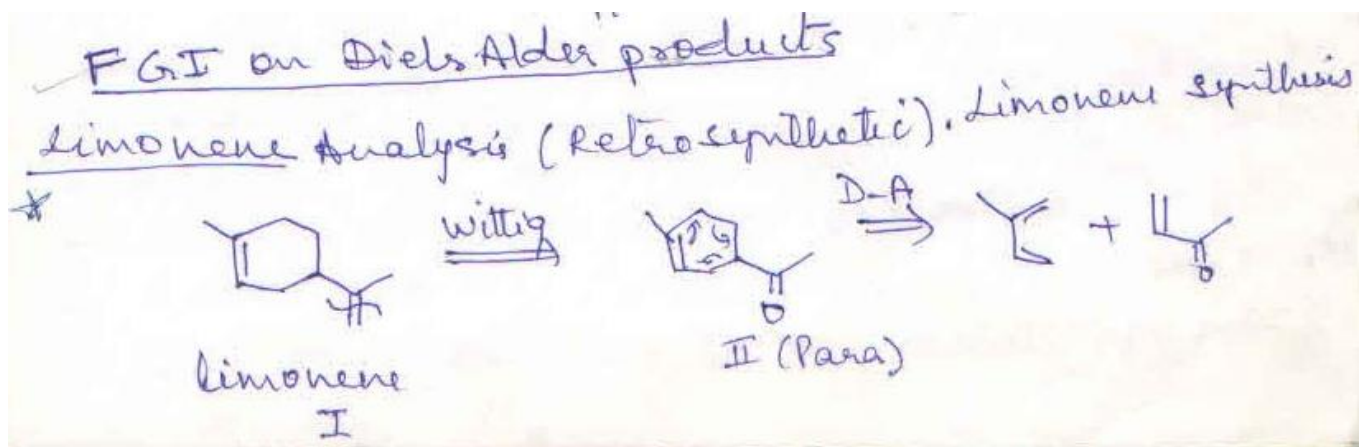 FGI on Diels Alder products
Limonene Analysis (Retrosynthetic). Limonene synthesis
Wittig
D-A
+
O
O
II (Para)
limonene
I